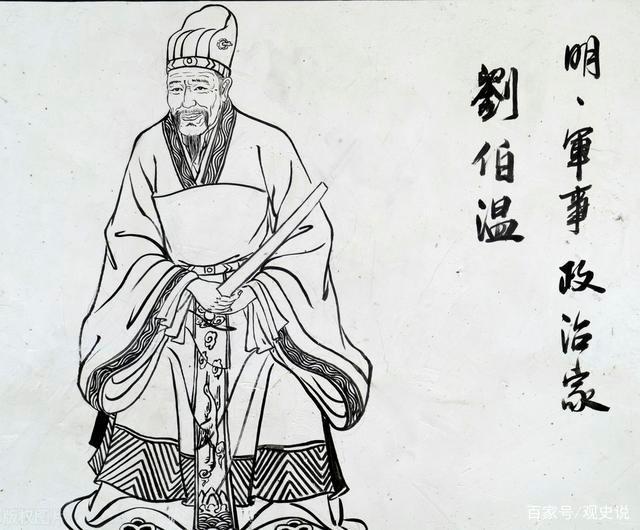 明、軍事政治家
劉伯温
百家号/观史说
版权图片